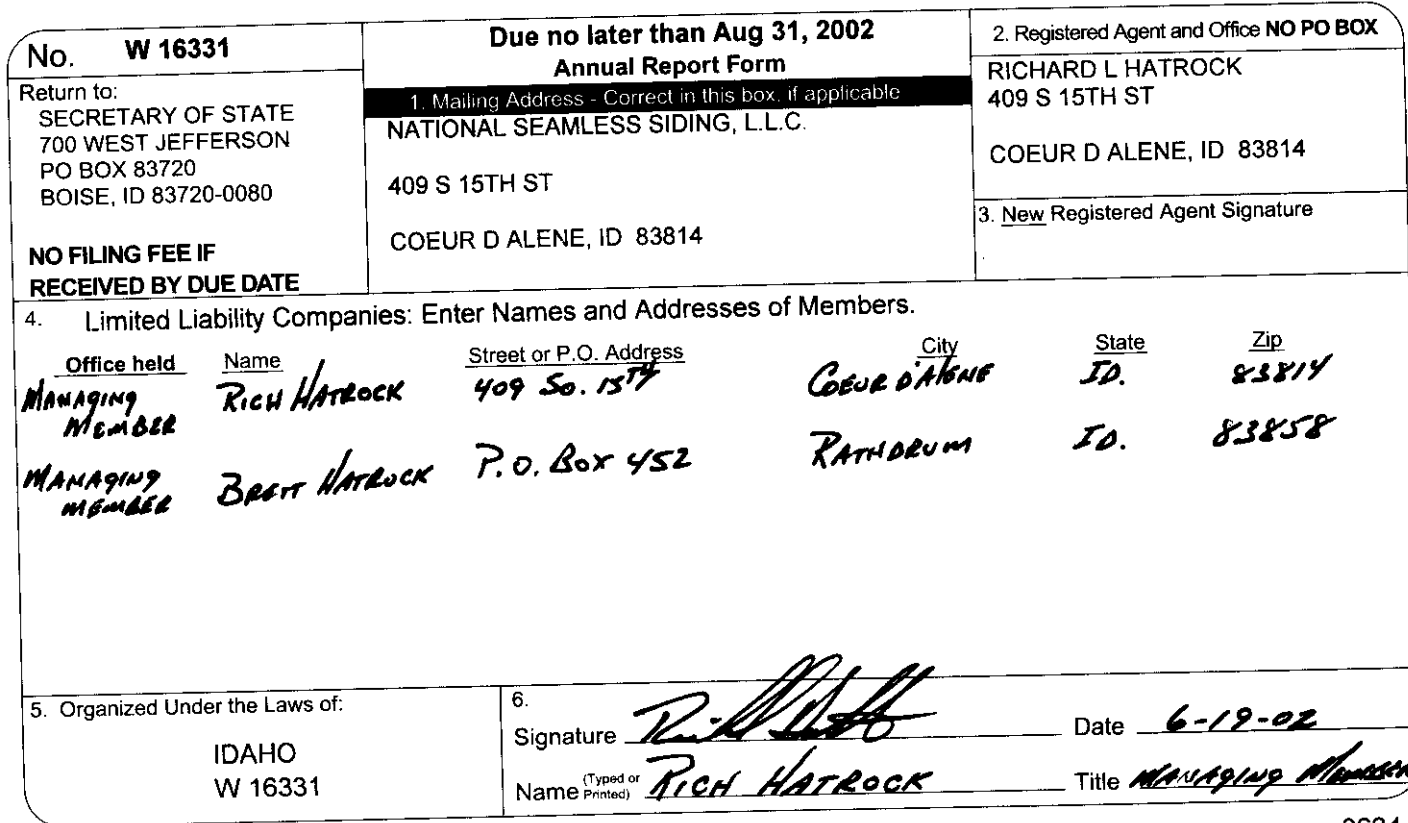 No. W 16331
Return to:
SECRETARY OF STATE
700 WEST JEFFERSON
PO BOX 83720
BOISE, ID 83720-0080
NO FILING FEE IF
RECEIVED BY DUE DATE
Due no later than Aug 31, 2002
Annual Report Form
1. Mailing Address - Correct in this box, if applicable
NATIONAL SEAMLESS SIDING, L.L.C.
409 S 15TH ST
COEUR D ALENE, ID 83814
2. Registered Agent and Office NO PO BOX
RICHARD L HATROCK
409 S 15TH ST
COEUR D ALENE, ID 83814
3. New Registered Agent Signature
4. Limited Liability Companies: Enter Names and Addresses of Members.
Office held Name Street or P.O. Address City State Zip
MANAGING RICH HATROCK 409 So. 15TH COEUR D'ALENE ID. 83814
MEMBER
MANAGING BRETT HATROCK P.O. BOX 452 RATHDRUM ID. 83858
MEMBER
5. Organized Under the Laws of:
IDAHO
W 16331
6.
Signature Date 6-19-02
Name (Typed or Printed) RICH HATROCK Title MANAGING MEMBER